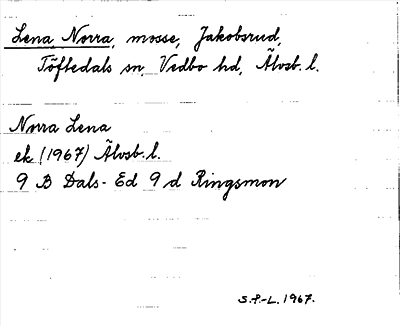 Lena, Norra, mosse, Jakobsrud,
Töftedals sn, Vedbo hd, Älvsb. l.
Norra Lena
ek (1967) Älvsb. l.
9 B Dals-Ed 9 d Ringsmon
S.P.-L. 1967.